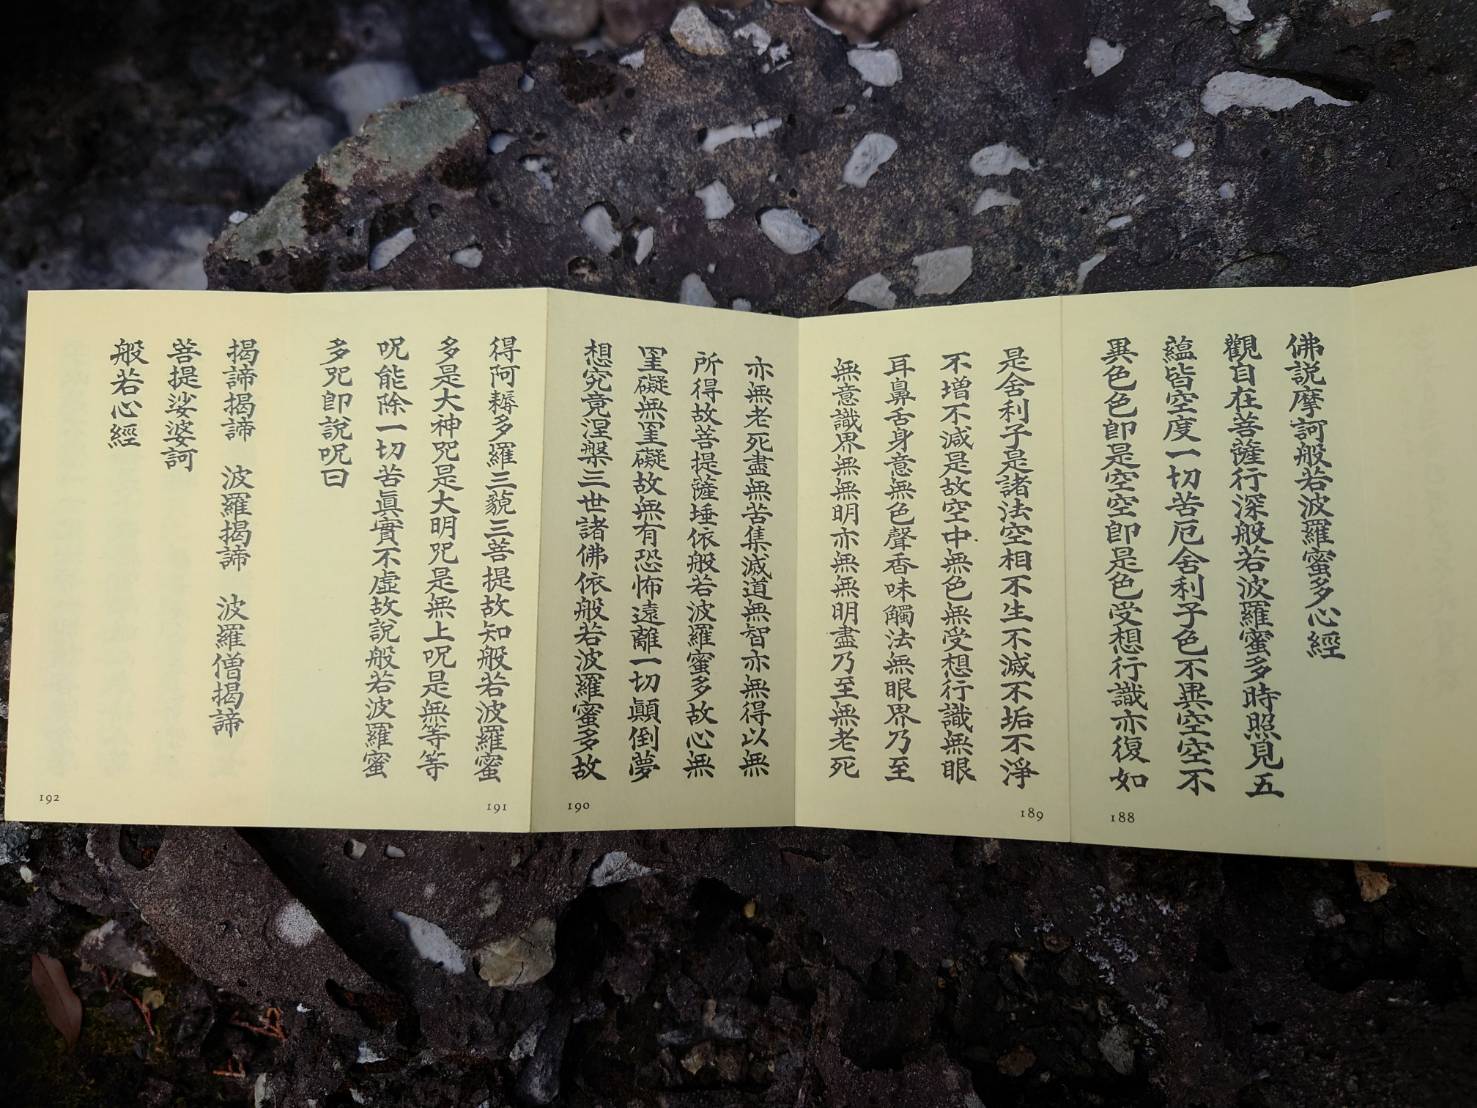 佛説摩訶般若波羅蜜多心經
觀自在菩薩行深般若波羅蜜多時照見五
蘊皆空度一切苦厄舍利子色不異空空不
異色色卽是空空卽是色受想行識亦復如
188
是舍利子是諸法空相不生不滅不垢不淨
不增不減是故空中無色無受想行識無眼
耳鼻舌身意無色聲香味觸法無眼界乃至
無意識界無無明亦無無明盡乃至無老死
189
亦無老死盡無苦集滅道無智亦無得以無
所得故菩提薩埵依般若波羅蜜多故心無
罣礙無罣礙故無有恐怖遠離一切顚倒夢
想究竟涅槃三世諸佛依般若波羅蜜多故
190
得阿耨多羅三藐三菩提故知般若波羅蜜
多是大神咒是大明咒是無上呪是無等等
呪能除一切苦眞實不虛故説般若波羅蜜
多咒卽說呪曰
191
揭諦揭諦 波羅揭諦 波羅僧揭諦
菩提娑婆訶
般若心經
192